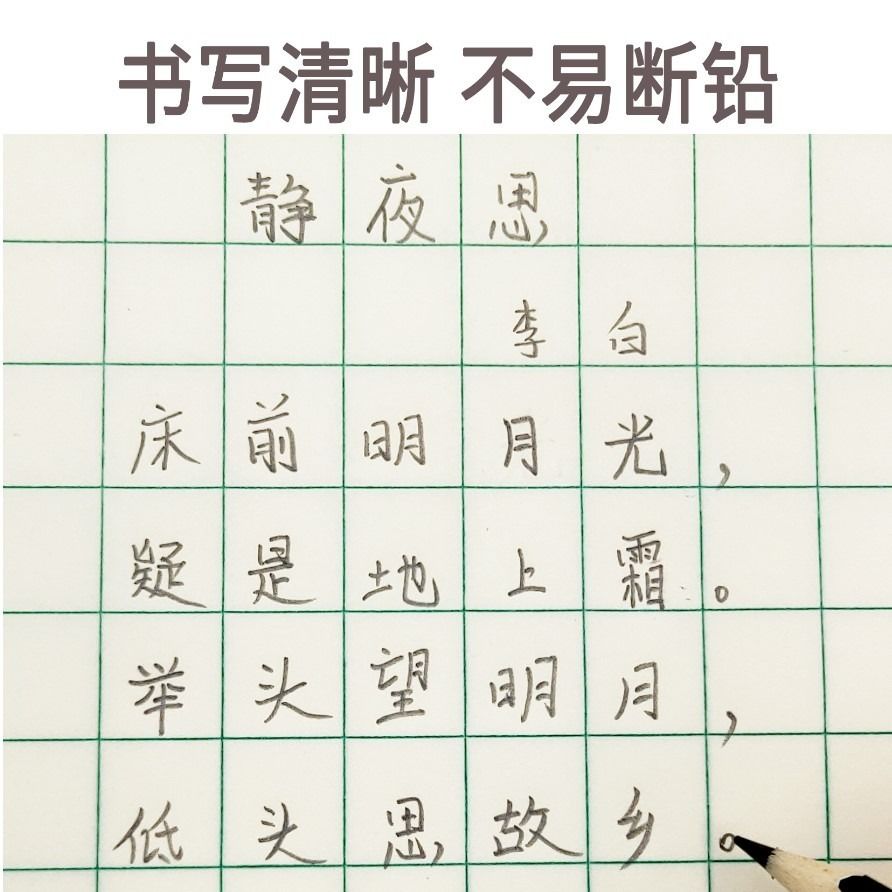 书写清晰 不易断铅
静夜思
李白
床前明月光，
疑是地上霜。
举头望明月，
低头思故乡。